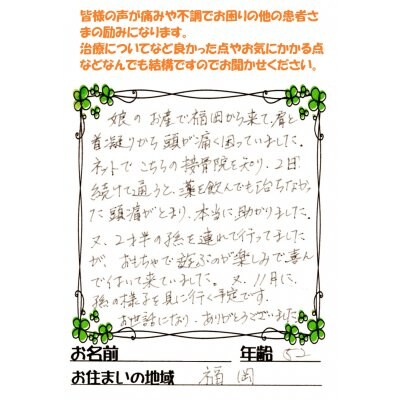 皆様の声が痛みや不調でお困りの他の患者さ
まの励みになります。
治療についてなど良かった点やお気にかかる点
などなんでも結構ですのでお聞かせください。
娘のお産で福岡から来て、肩と
首凝りから頭が痛く困っていました。
ネットでこちらの接骨院を知り、2日
続けて通うと、薬を飲んでも治らなかっ
た頭痛がとまり、本当に助かりました。
又、2才半の孫を連れて行ってました
が、おもちゃで遊ぶのが楽しみで喜ん
で付いて来ていました。又、11月に、
孫の様子を見に行く予定です。
お世話になり、ありがとうございました。
お名前 年齢 52
お住まいの地域 福岡